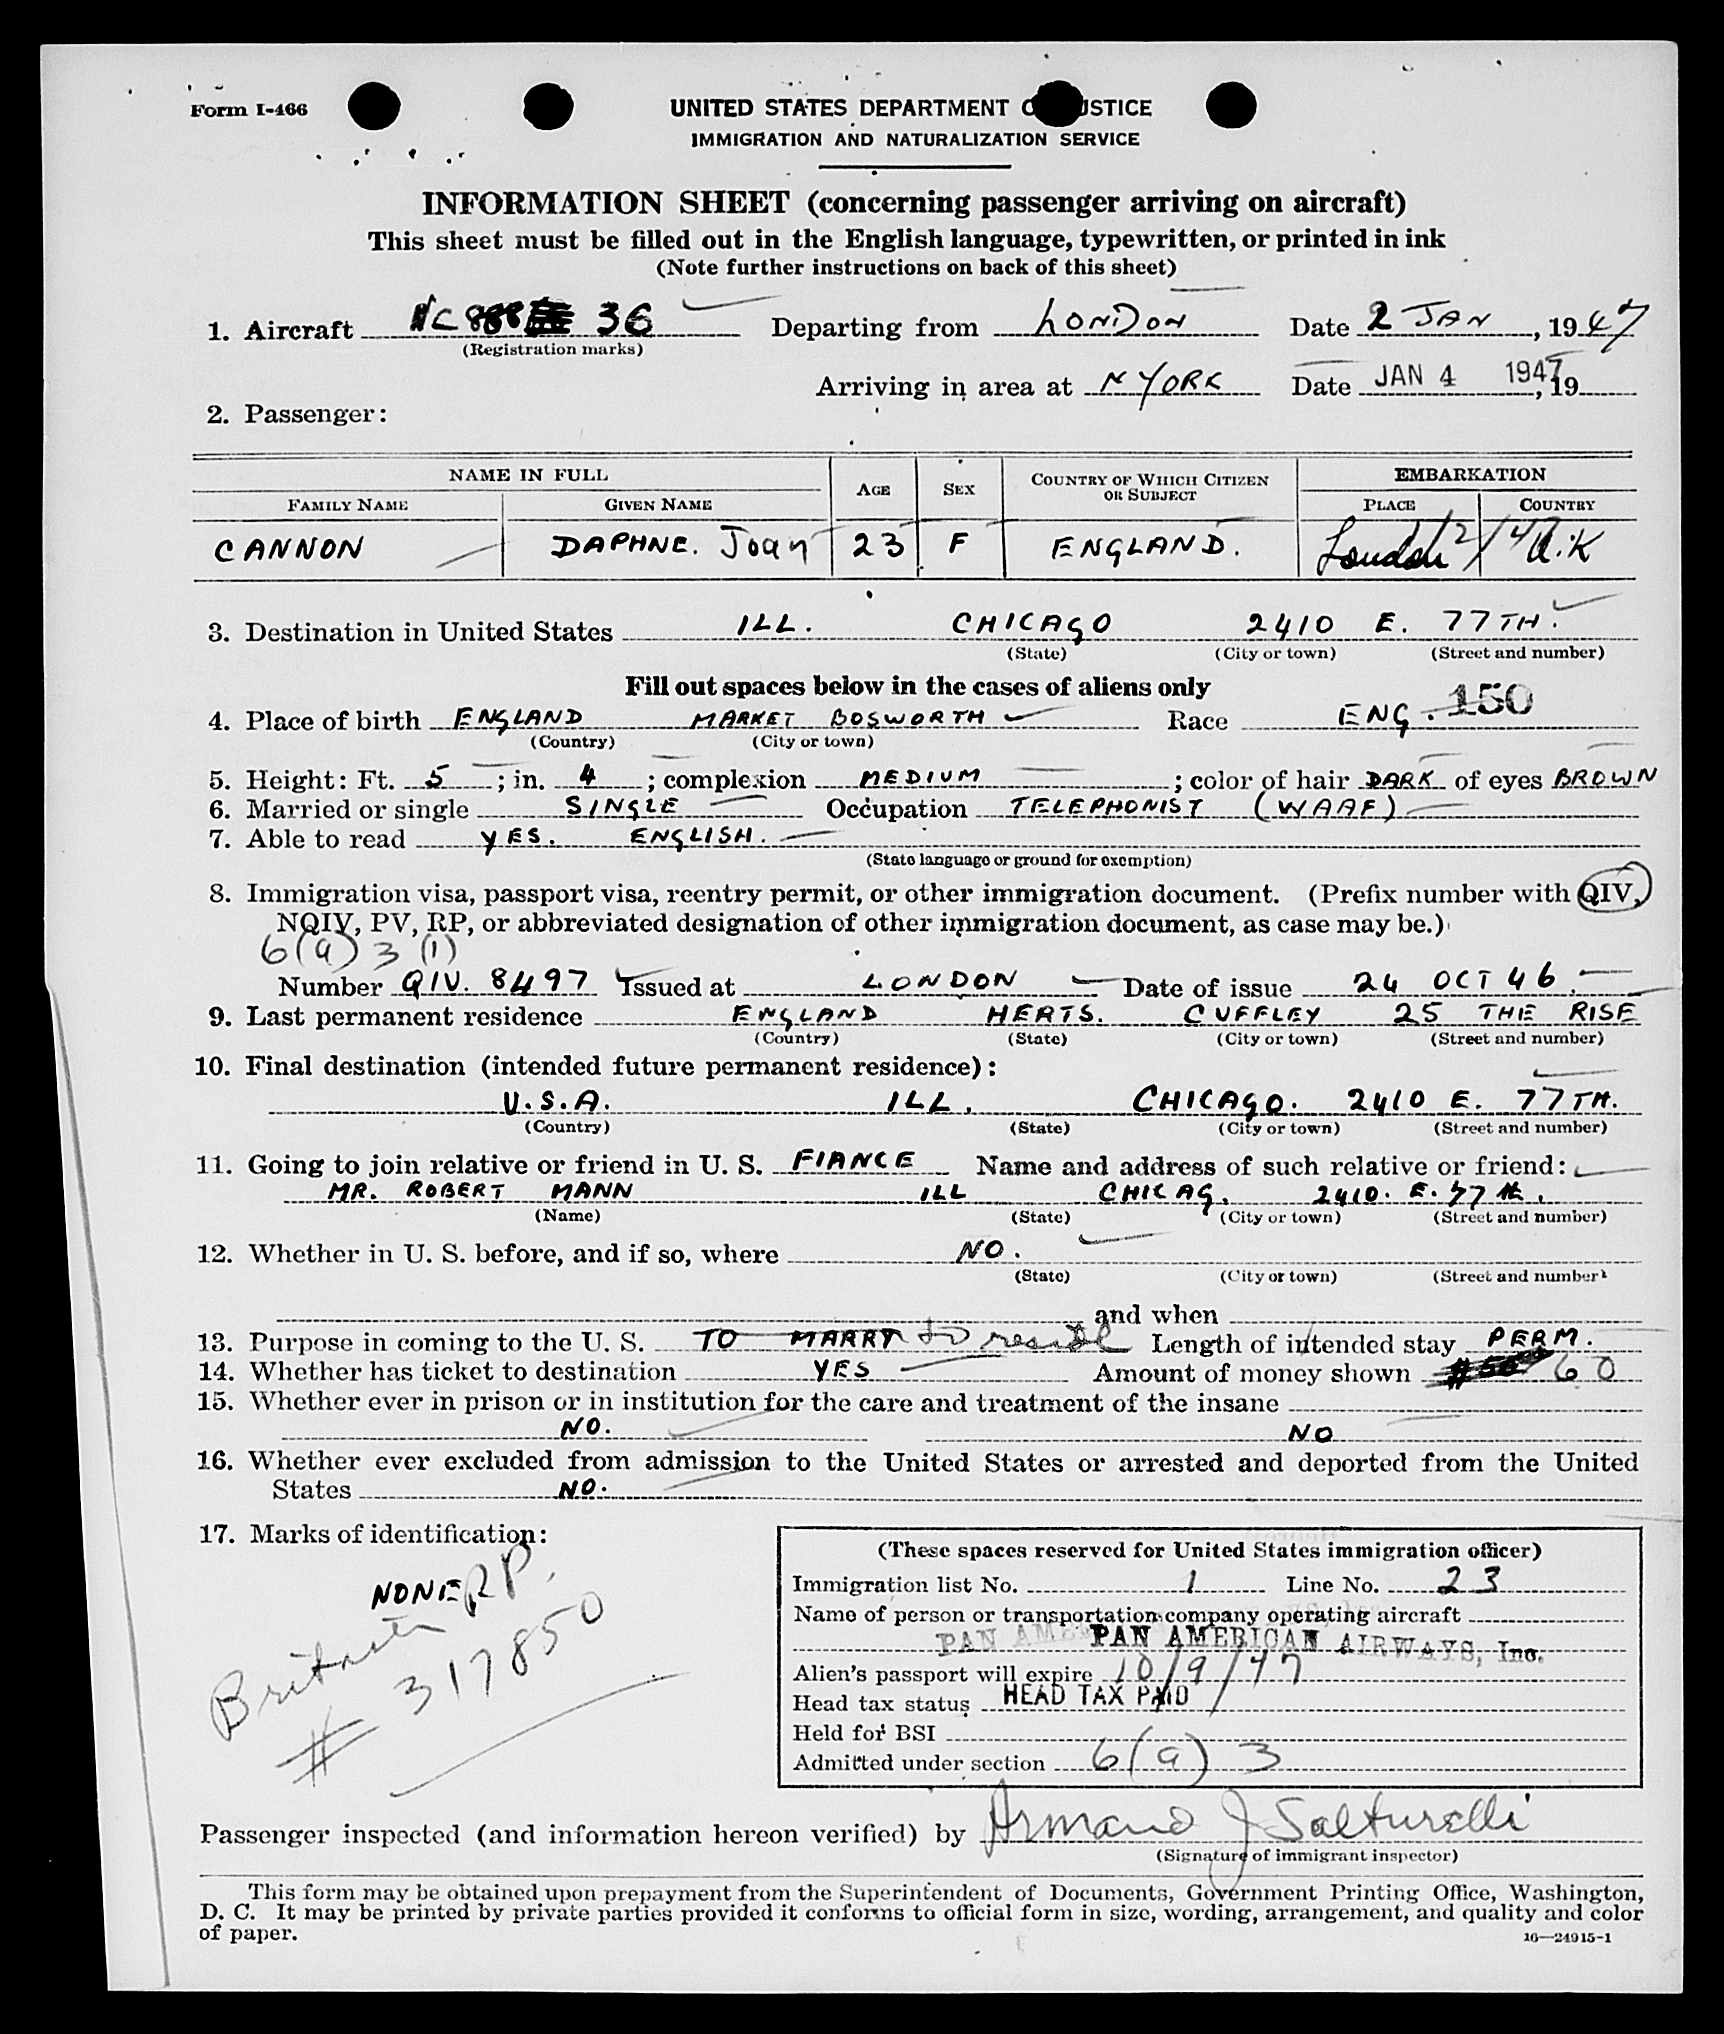 Form I-466
UNITED STATES DEPARTMENT O JSTICE
IMMIGRATION AND NATURALIZATION SERVICE
INFORMATION SHEET (concerning passenger arriving on aircraft)
This sheet must be filled out in the English language, typewritten, or printed in ink
(Note further instructions on back of this sheet)
1. Aircraft NC 888 36 Departing from LONDON Date 2 JAN, 1947
(Registration marks)
Arriving in area at N YORK Date JAN 4 1947, 19
2. Passenger:
NAME IN FULL AGE SEX COUNTRY OF WHICH CITIZEN OR SUBJECT EMBARKATION
FAMILY NAME GIVEN NAME PLACE COUNTRY
CANNON DAPHNE. Joan 23 F ENGLAND. London 2/1/47 U.K
3. Destination in United States ILL. CHICAGO 2410 E. 77TH.
(State) (City or town) (Street and number)
Fill out spaces below in the cases of aliens only
4. Place of birth ENGLAND MARKET BOSWORTH Race ENG. 150
(Country) (City or town)
5. Height: Ft. 5; in. 4; complexion MEDIUM; color of hair DARK of eyes BROWN
6. Married or single SINGLE Occupation TELEPHONIST (WAAF)
7. Able to read YES. ENGLISH.
(State language or ground for exemption)
8. Immigration visa, passport visa, reentry permit, or other immigration document. (Prefix number with QIV,
NQIV, PV, RP, or abbreviated designation of other immigration document, as case may be.)
6(a) 3 (1)
Number QIV. 8497 Issued at LONDON Date of issue 24 OCT 46.
9. Last permanent residence ENGLAND HERTS. CUFFLEY 25 THE RISE
(Country) (State) (City or town) (Street and number)
10. Final destination (intended future permanent residence):
U.S.A. ILL. CHICAGO. 2410 E. 77TH.
(Country) (State) (City or town) (Street and number)
11. Going to join relative or friend in U. S. FIANCE Name and address of such relative or friend:
MR. ROBERT MANN ILL CHICAG. 2410. E. 77 th.
(Name) (State) (City or town) (Street and number)
12. Whether in U. S. before, and if so, where NO.
(State) (City or town) (Street and number)
and when
13. Purpose in coming to the U. S. TO MARRY to reside Length of intended stay PERM.
14. Whether has ticket to destination YES Amount of money shown 60
15. Whether ever in prison or in institution for the care and treatment of the insane
NO. NO
16. Whether ever excluded from admission to the United States or arrested and deported from the United
States NO.
17. Marks of identification:
NONE
PP.
# 317850
(These spaces reserved for United States immigration officer)
Immigration list No. 1 Line No. 23
Name of person or transportation company operating aircraft
PAN AMERICAN AIRWAYS, Inc.
Alien's passport will expire 10/9/47
Head tax status HEAD TAX PAID
Held for BSI
Admitted under section 6(a) 3
Passenger inspected (and information hereon verified) by Armand J Salturelli
(Signature of immigrant inspector)
This form may be obtained upon prepayment from the Superintendent of Documents, Government Printing Office, Washington,
D. C. It may be printed by private parties provided it conforms to official form in size, wording, arrangement, and quality and color
of paper.
16—24915-1